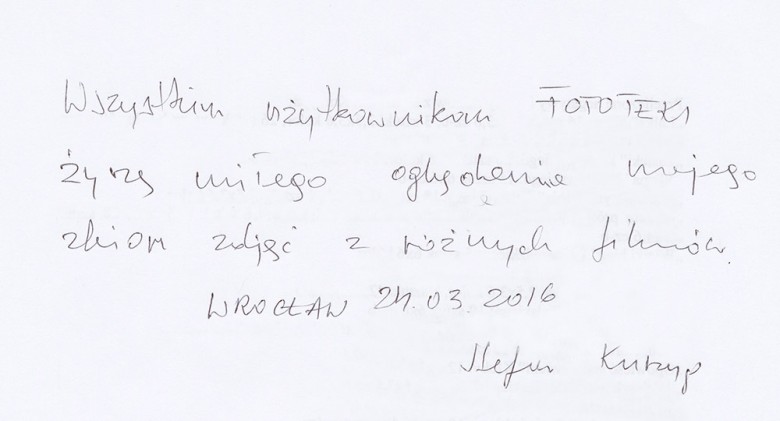 Wszystkim użytkownikom FOTOTEKI
życzę miłego oglądania mojego
zbioru zdjęć z różnych filmów.
WROCŁAW 24.03.2016
Stefan Kurzyp